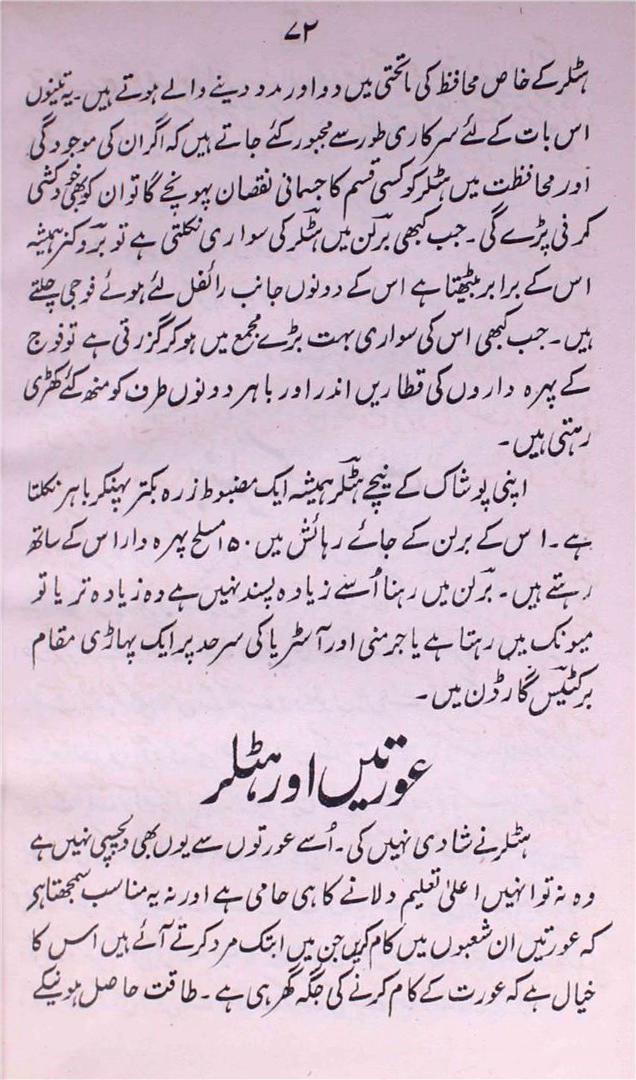 ۷۲
ہٹلر کے خاص محافظ کی ماتحتی میں دو اور مدد دینے والے ہوتے ہیں۔ یہ تینوں
اس بات کے لئے سرکاری طور سے مجبور کئے جاتے ہیں کہ اگر ان کی موجودگی
اور محافظت میں ہٹلر کو کسی قسم کا جسمانی نقصان پہونچے گا تو ان کو بھی خودکشی
کرنی پڑے گی۔ جب کبھی برلن میں ہٹلر کی سواری نکلتی ہے تو بروکنر ہمیشہ
اس کے برابر بیٹھتا ہے اس کے دونوں جانب رائفل لئے ہوئے فوجی چلتے
ہیں۔ جب کبھی اس کی سواری بہت بڑے مجمع میں ہو کر گزرتی ہے تو فوج
کے پہرہ داروں کی قطاریں اندر اور باہر دونوں طرف کو منھ کئے کھڑی
رہتی ہیں۔
اپنی پوشاک کے نیچے ہٹلر ہمیشہ ایک مضبوط زرہ بکتر پہنکر باہر نکلتا
ہے۔ اس کے برلن کے جائے رہائش میں ۱۵۰ مسلح پہرہ دار اس کے ساتھ
رہتے ہیں۔ برلن میں رہنا اُسے زیادہ پسند نہیں ہے وہ زیادہ تر یا تو
میونک میں رہتا ہے یا جرمنی اور آسٹریا کی سرحد پر ایک پہاڑی مقام
برکٹیس گارڈن میں۔
عورتیں اور ہٹلر
ہٹلر نے شادی نہیں کی۔ اُسے عورتوں سے یوں بھی دلچسپی نہیں ہے
وہ نہ تو انہیں اعلیٰ تعلیم دلانے کا ہی حامی ہے اور نہ یہ مناسب سمجھتا ہے
کہ عورتیں ان شعبوں میں کام کریں جن میں ابتک مرد کرتے آئے ہیں اس کا
خیال ہے کہ عورت کے کام کرنے کی جگہ گھر ہی ہے۔ طاقت حاصل ہونیکے